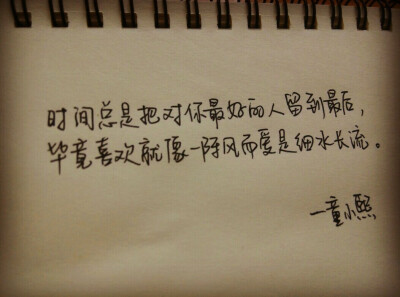 时间总是把对你最好的人留到最后，
毕竟喜欢就像一阵风而爱是细水长流。
—童小熙